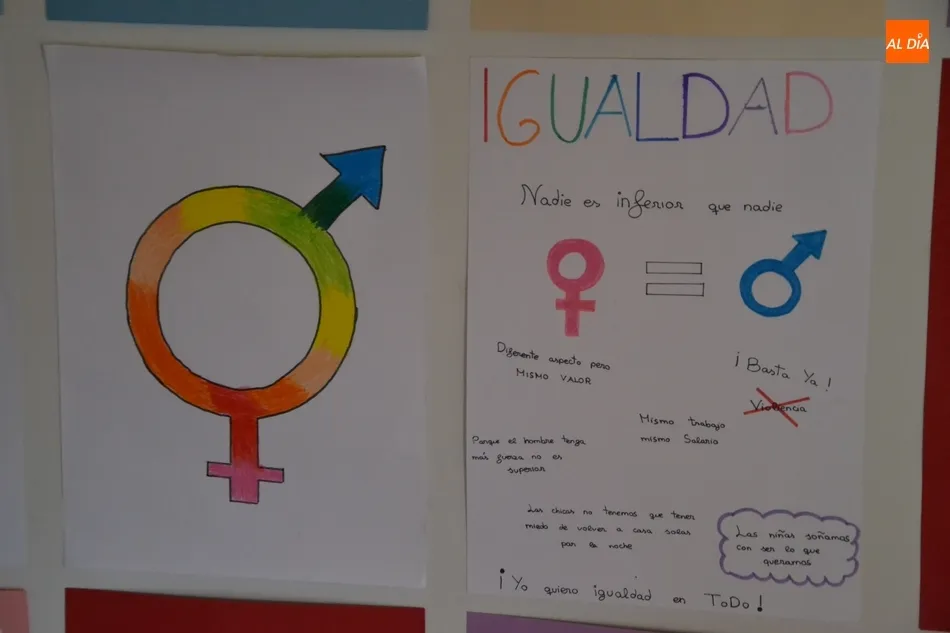 AL DÍA
IGUALDAD
Nadie es inferior que nadie
Diferente aspecto pero
MISMO VALOR
¡Basta Ya!
Violencia
Mismo trabajo
mismo Salario
Porque el hombre tenga
más fuerza no es
superior
Las chicas no tenemos que tener
miedo de volver a casa solas
por la noche
Las niñas soñamos
con ser lo que
queramos
¡Yo quiero igualdad en ToDo!